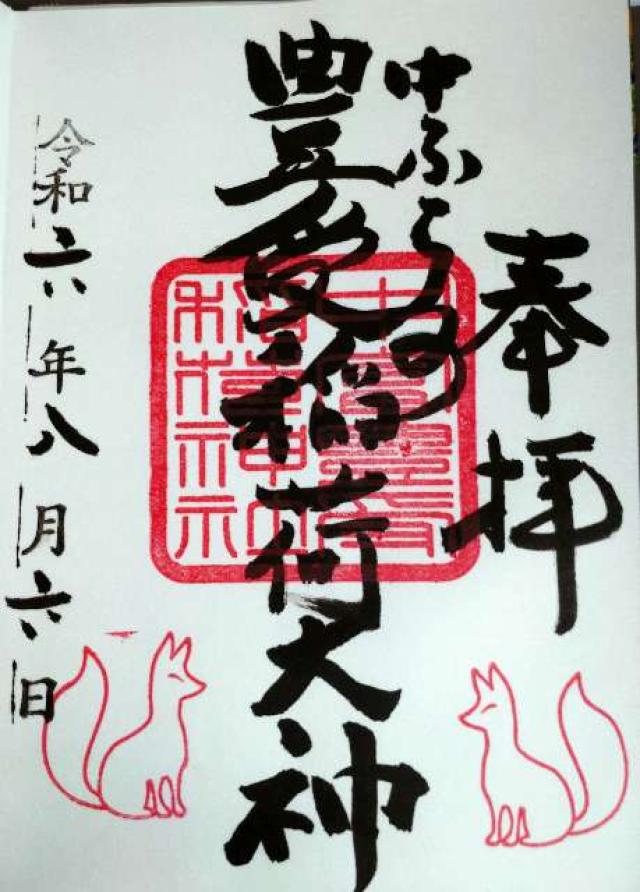 奉拝
中ふらの
豊受稲荷大神
令和六年八月六日